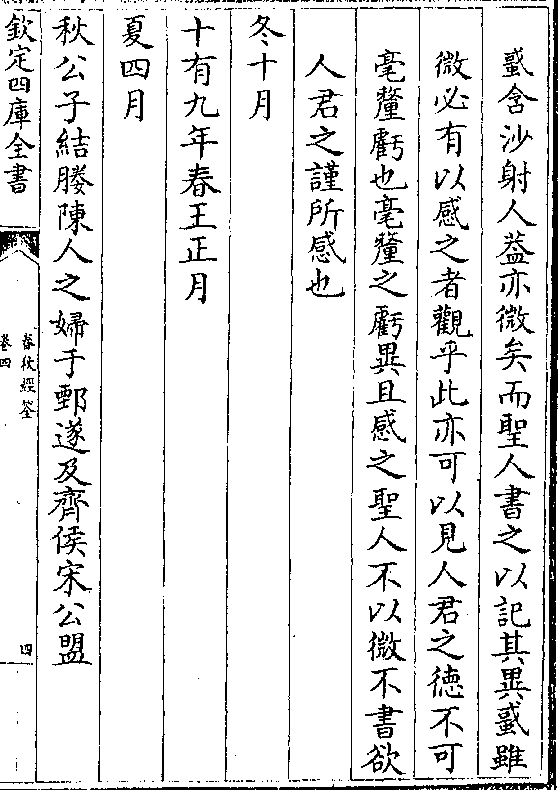 蜮含沙射人葢亦微矣而聖人書之以記其異蜮雖
微必有以感之者觀乎此亦可以見人君之徳不可
毫釐虧也毫釐之虧異且感之聖人不以微不書欲
人君之謹所感也
冬十月
十有九年春王正月
夏四月
秋公子結媵陳人之婦于鄄遂及齊侯宋公盟
欽定四庫全書
春秋經筌
卷四
四